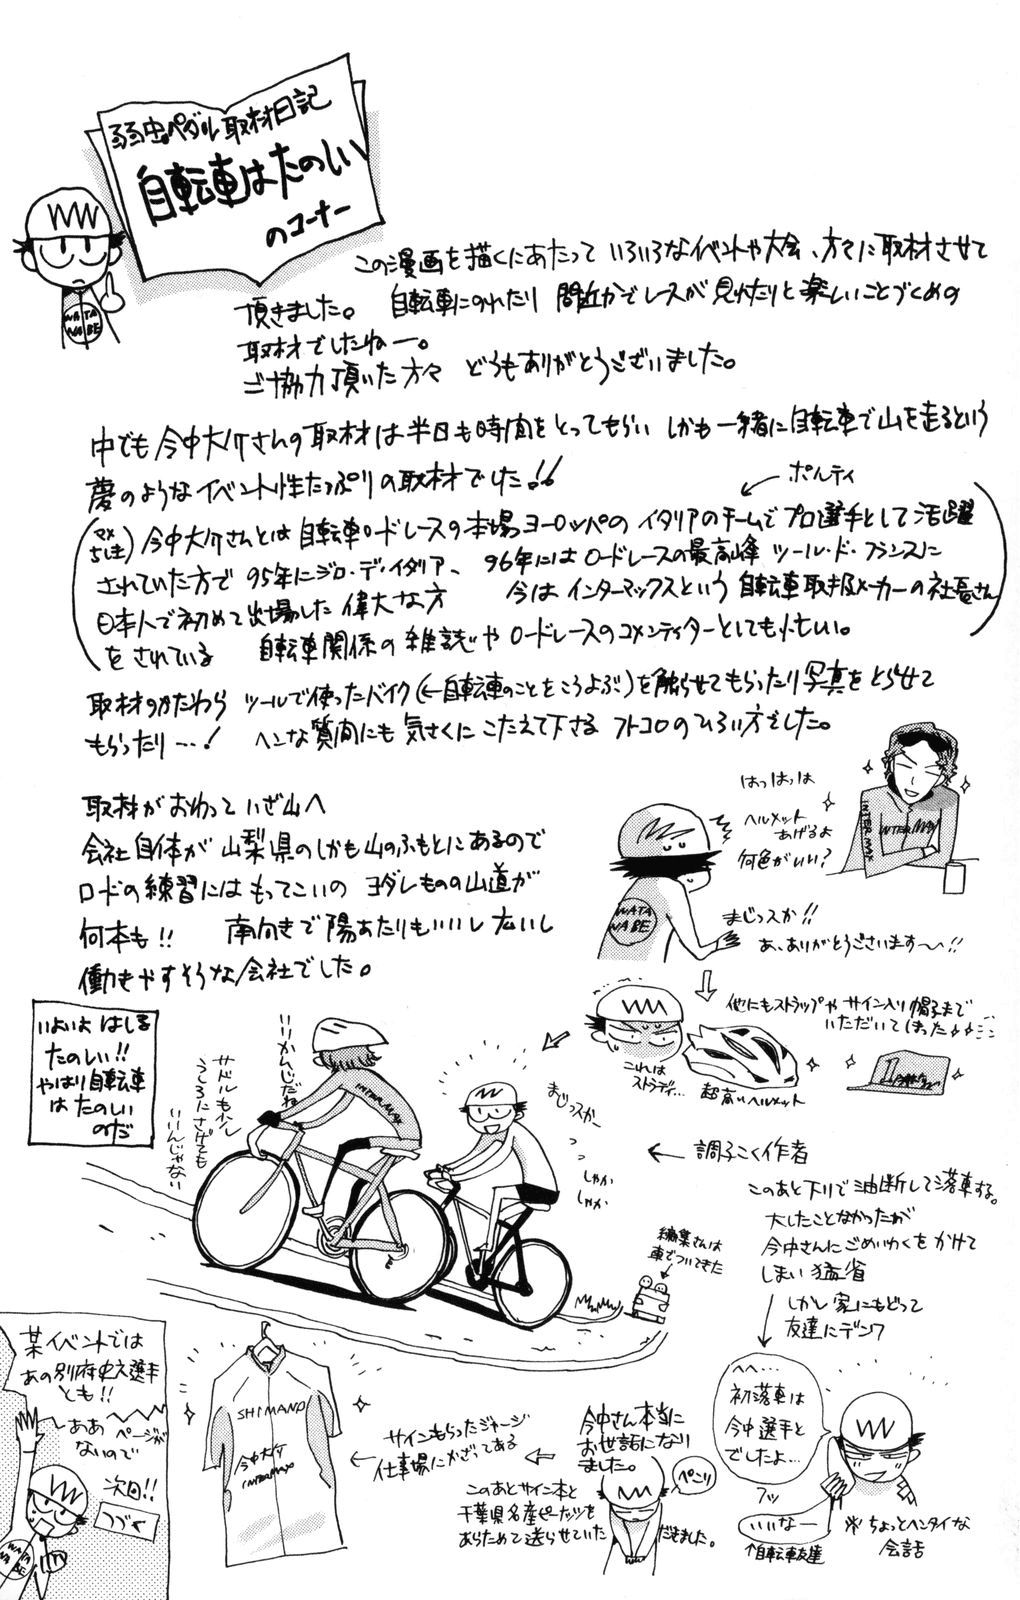 弱虫ペダル取材日記
自転車はたのしい
のコーナー
WATA
NABE
この漫画を描くにあたって いろいろなイベントや大会、方々に取材させて
頂きました。 自転車にのれたり 間近かでレースが見れたりと楽しいことづくめの
取材でしたねー。
ご協力頂いた方々 どうもありがとうございました。
中でも今中大介さんの取材は半日も時間をとってもらい しかも一緒に自転車で山を走るという
夢のようなイベント性たっぷりの取材でした!!
ポルティ
(マメちしき)
今中大介さんとは自転車ロードレースの本場ヨーロッパのイタリアのチームでプロ選手として活躍
されていた方で 95年にジロ・デ・イタリア、 96年にはロードレースの最高峰 ツール・ド・フランスに
日本人で初めて出場した偉大な方 今はインターマックスという自転車取扱メーカーの社長さん
をされている 自転車関係の雑誌やロードレースのコメンテイターとしてもお忙しい。
取材のかたわら ツールで使ったバイク(←自転車のことをこうよぶ)を触らせてもらったり写真をとらせて
もらったり…! ヘンな質問にも気さくにこたえて下さる フトコロのひろい方でした。
取材がおわって いざ山へ
会社自体が山梨県のしかも山のふもとにあるので
ロードの練習にはもってこいの ヨダレものの山道が
何本も!! 南向きで陽あたりもいいし広いし
働きやすそうな会社でした。
はっはっは
ヘルメット
あげるよ
何色がいい?
INTERMAX
INTERMAX
WATA
NABE
まじっスか!!
あ、ありがとうございます〜!!
他にもストラップや サイン入り帽子まで
いただいてしまった
これは
ストラディ…
超高いヘルメット
いよいよ はしる
たのしい!!
やはり自転車
は たのしい
のだ
いいかんじだね
サドルもう少し
うしろにさげても
いいんじゃない
INTERMAX
まじっスかー
しゃか
しゃか
← 調子こく作者
編集さんは
車でついてきた
このあと下りで油断して落車する。
大したことなかったが
今中さんにごめいわくをかけて
しまい猛省
しかし家にもどって
友達にデンワ
へへ…
初落車は
今中選手と
でしたよ…
フッ
いいなー
↑自転車友達
※ちょっとヘンタイな
会話
今中さん本当に
お世話になり
ました。
ぺこり
このあとサイン本と
千葉県名産ピーナッツを
あらためて送らせていただきました。
サインもらったジャージ
仕事場にかざってある
SHIMANO
今中大介
INTERMAX
某イベントでは
あの別府史之選手
とも!!
ああ ページが
ないので
次回!!
つづく
WATA
NABE